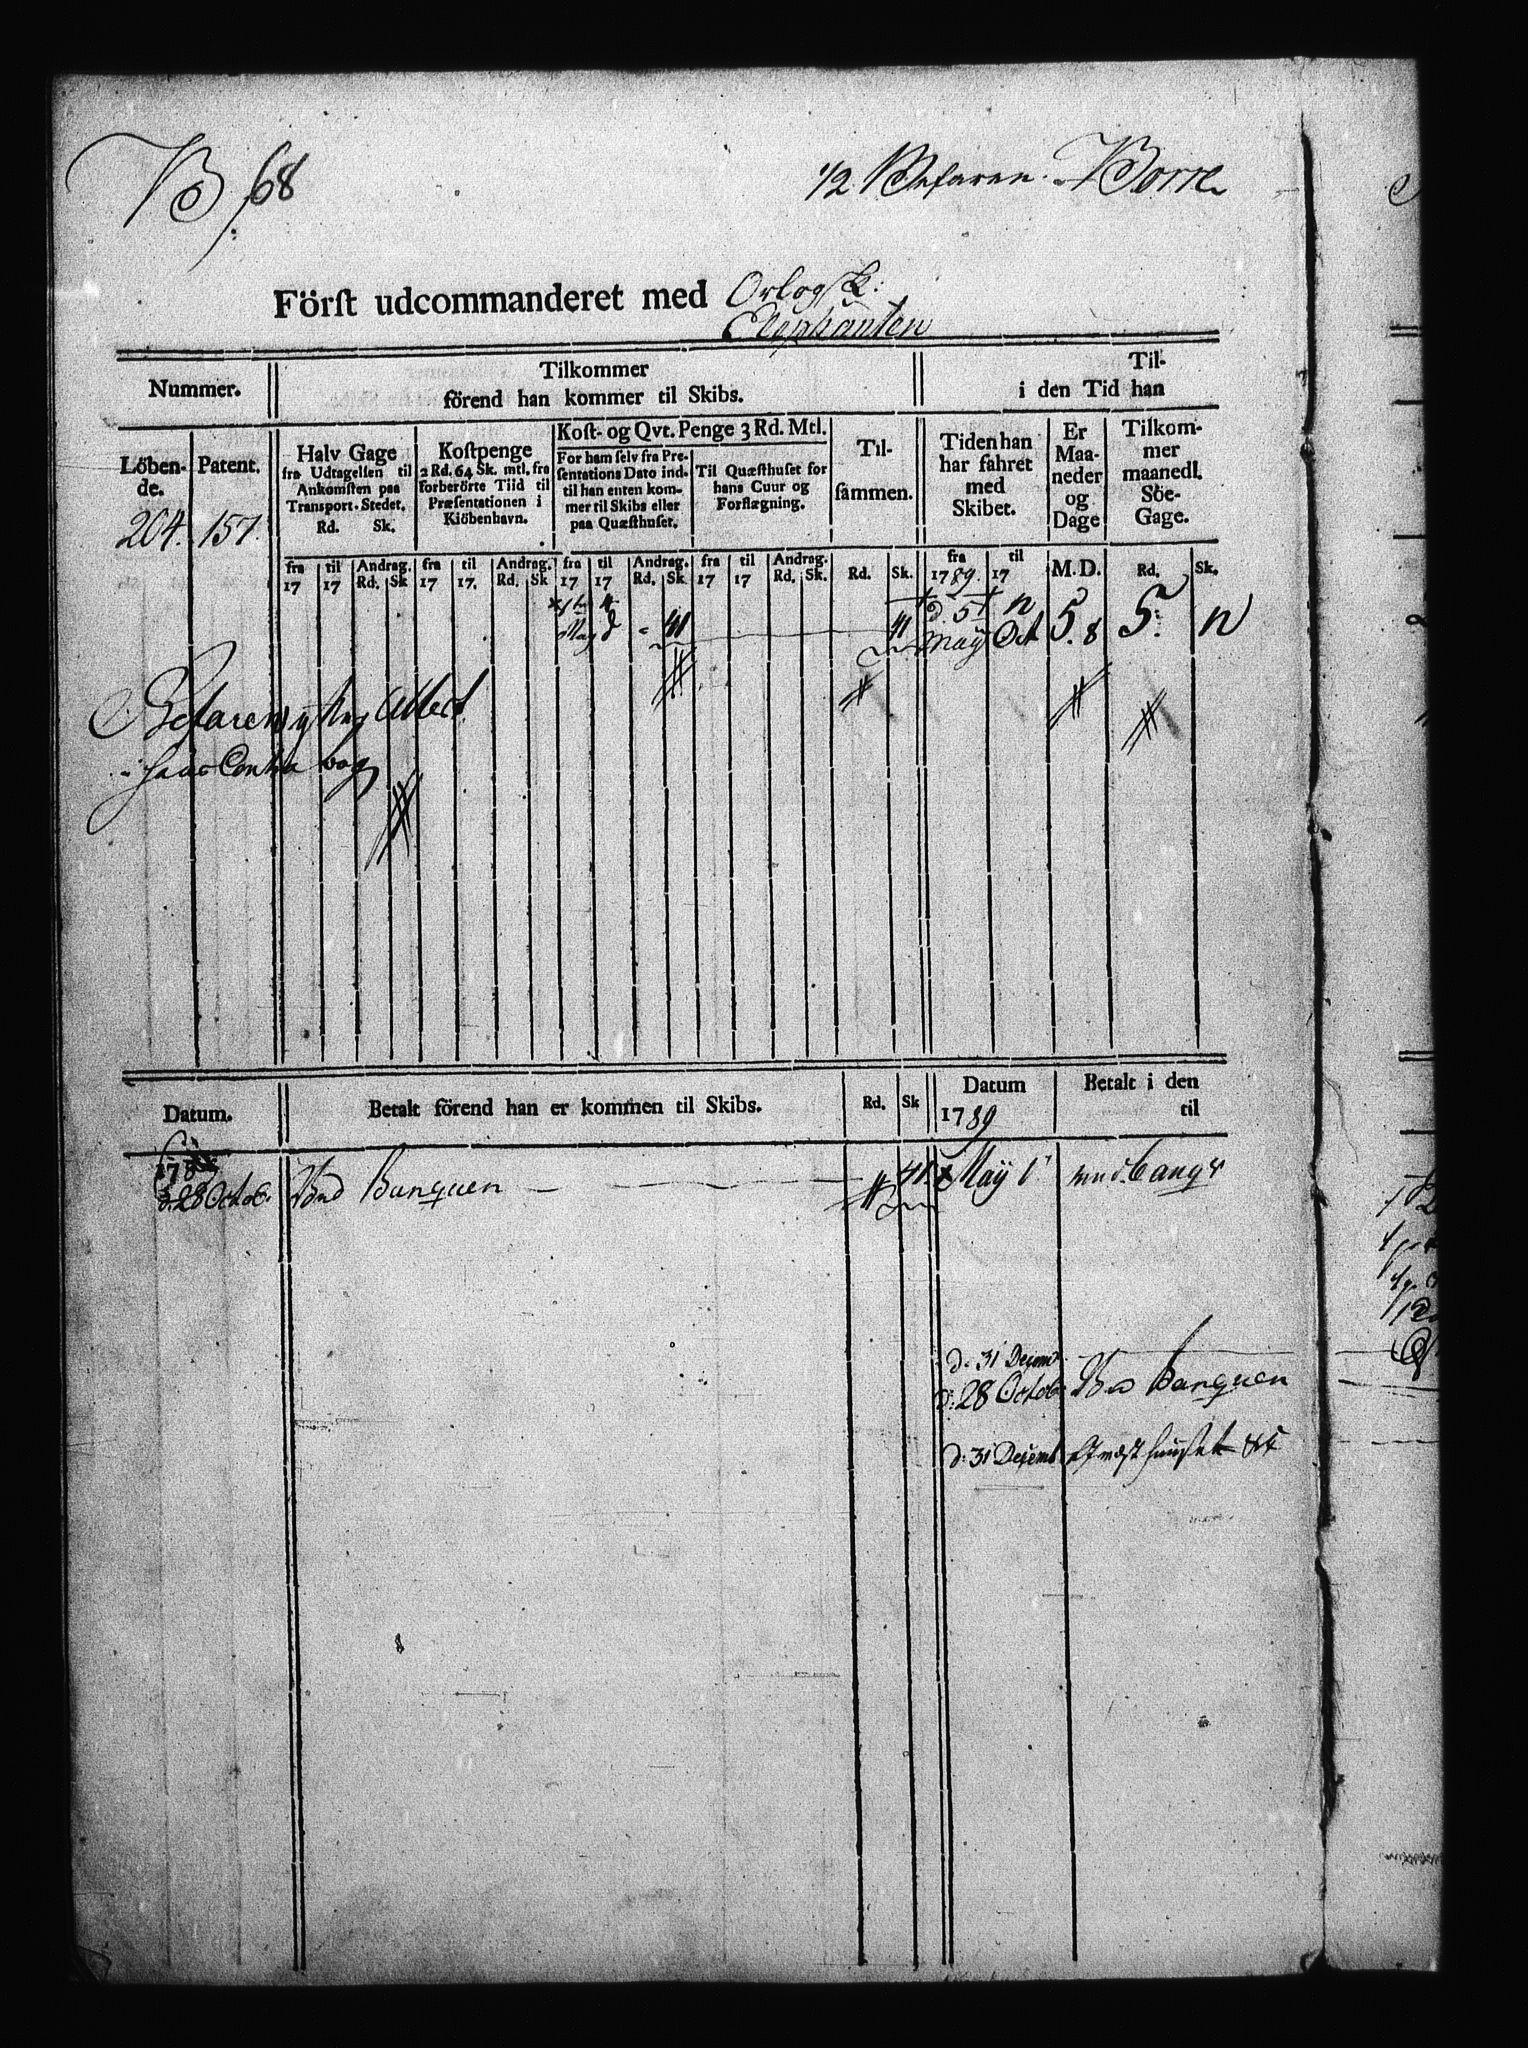 B 68
1/2 Befaren. Borre
Först udcommanderet med Orlogsk:
Elephanten
Nummer.
Tilkommer
förend han kommer til Skibs.
Til-
i den Tid han
Löben-
de.
Patent.
Halv Gage
fra Udtagelsen til
Ankomsten paa
Transport-Stedet.
Rd. Sk.
Kostpenge
2 Rd. 64 Sk. mtl. fra
forberörte Tiid til
Præsentationen i
Kiöbenhavn.
Kost- og Qvt. Penge 3 Rd. Mtl.
For ham selv fra Pre-
sentations Dato ind-
til han enten kom-
mer til Skibs eller
paa Quæsthuset.
Til Quæsthuset for
hans Cuur og
Forflægning.
Til-
sammen.
Tiden han
har fahret
med
Skibet.
Er
Maa-
neder
og
Dage
Tilkom-
mer
maanedl.
Söe-
Gage.
204. 157.
fra til Andrag. fra til Andrag. fra til Andrag. fra til Andrag. Rd. Sk. fra til M. D. Rd. Sk.
17 17 Rd. Sk 17 17. Rd. Sk 17 17 Rd. Sk 17 17 Rd. Sk. 1789. 17
4 41 41 d. 5 May Oct 5. 8 5. n
Befaren
Contra bog
Datum.
Betalt förend han er kommen til Skibs.
Rd. Sk
Datum
1789
Betalt i den
til
178
d. 28 Octob. Ved Banquen 41. May
d. 31 Decem
d. 28 Octob Ved Banquen
d: 31 Decemb